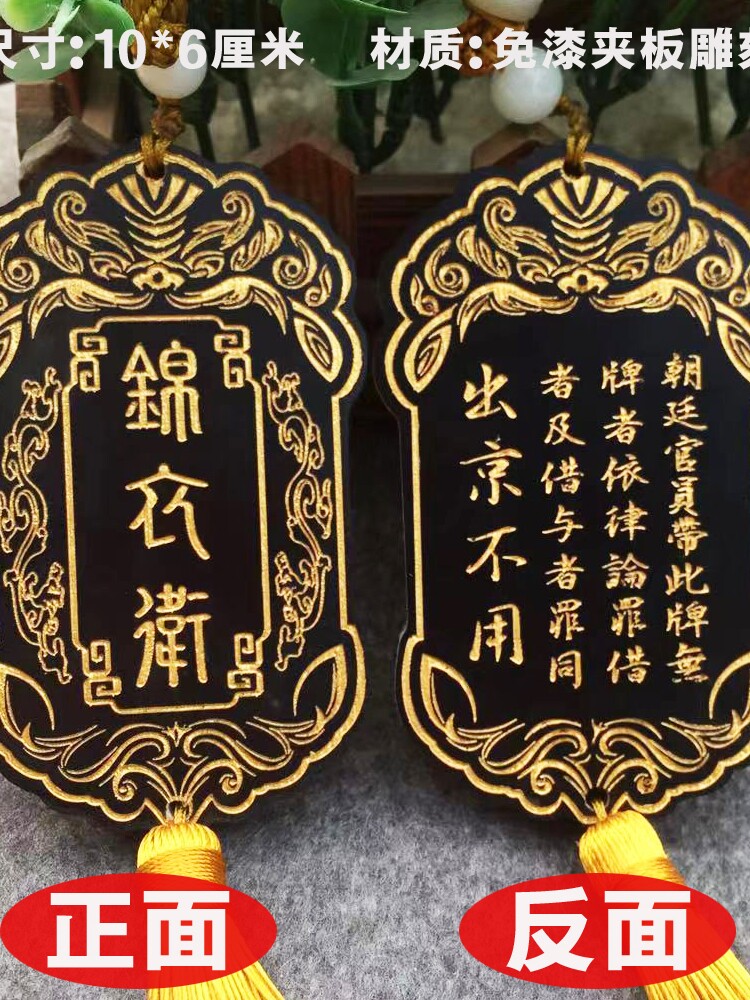 尺寸:10*6厘米
材质:免漆夹板雕刻
錦衣衛
朝廷官員帶此牌無
牌者依律論罪借
者及借与者罪同
出京不用
正面
反面